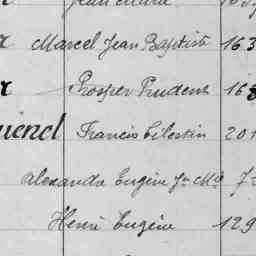 Jean Marie
r Marcel Jean Baptiste 163
r Prosper Prudent 168
uend Francis Célestin 201
Alexandre Eugène Jn Mie 7
Henri Eugène 129